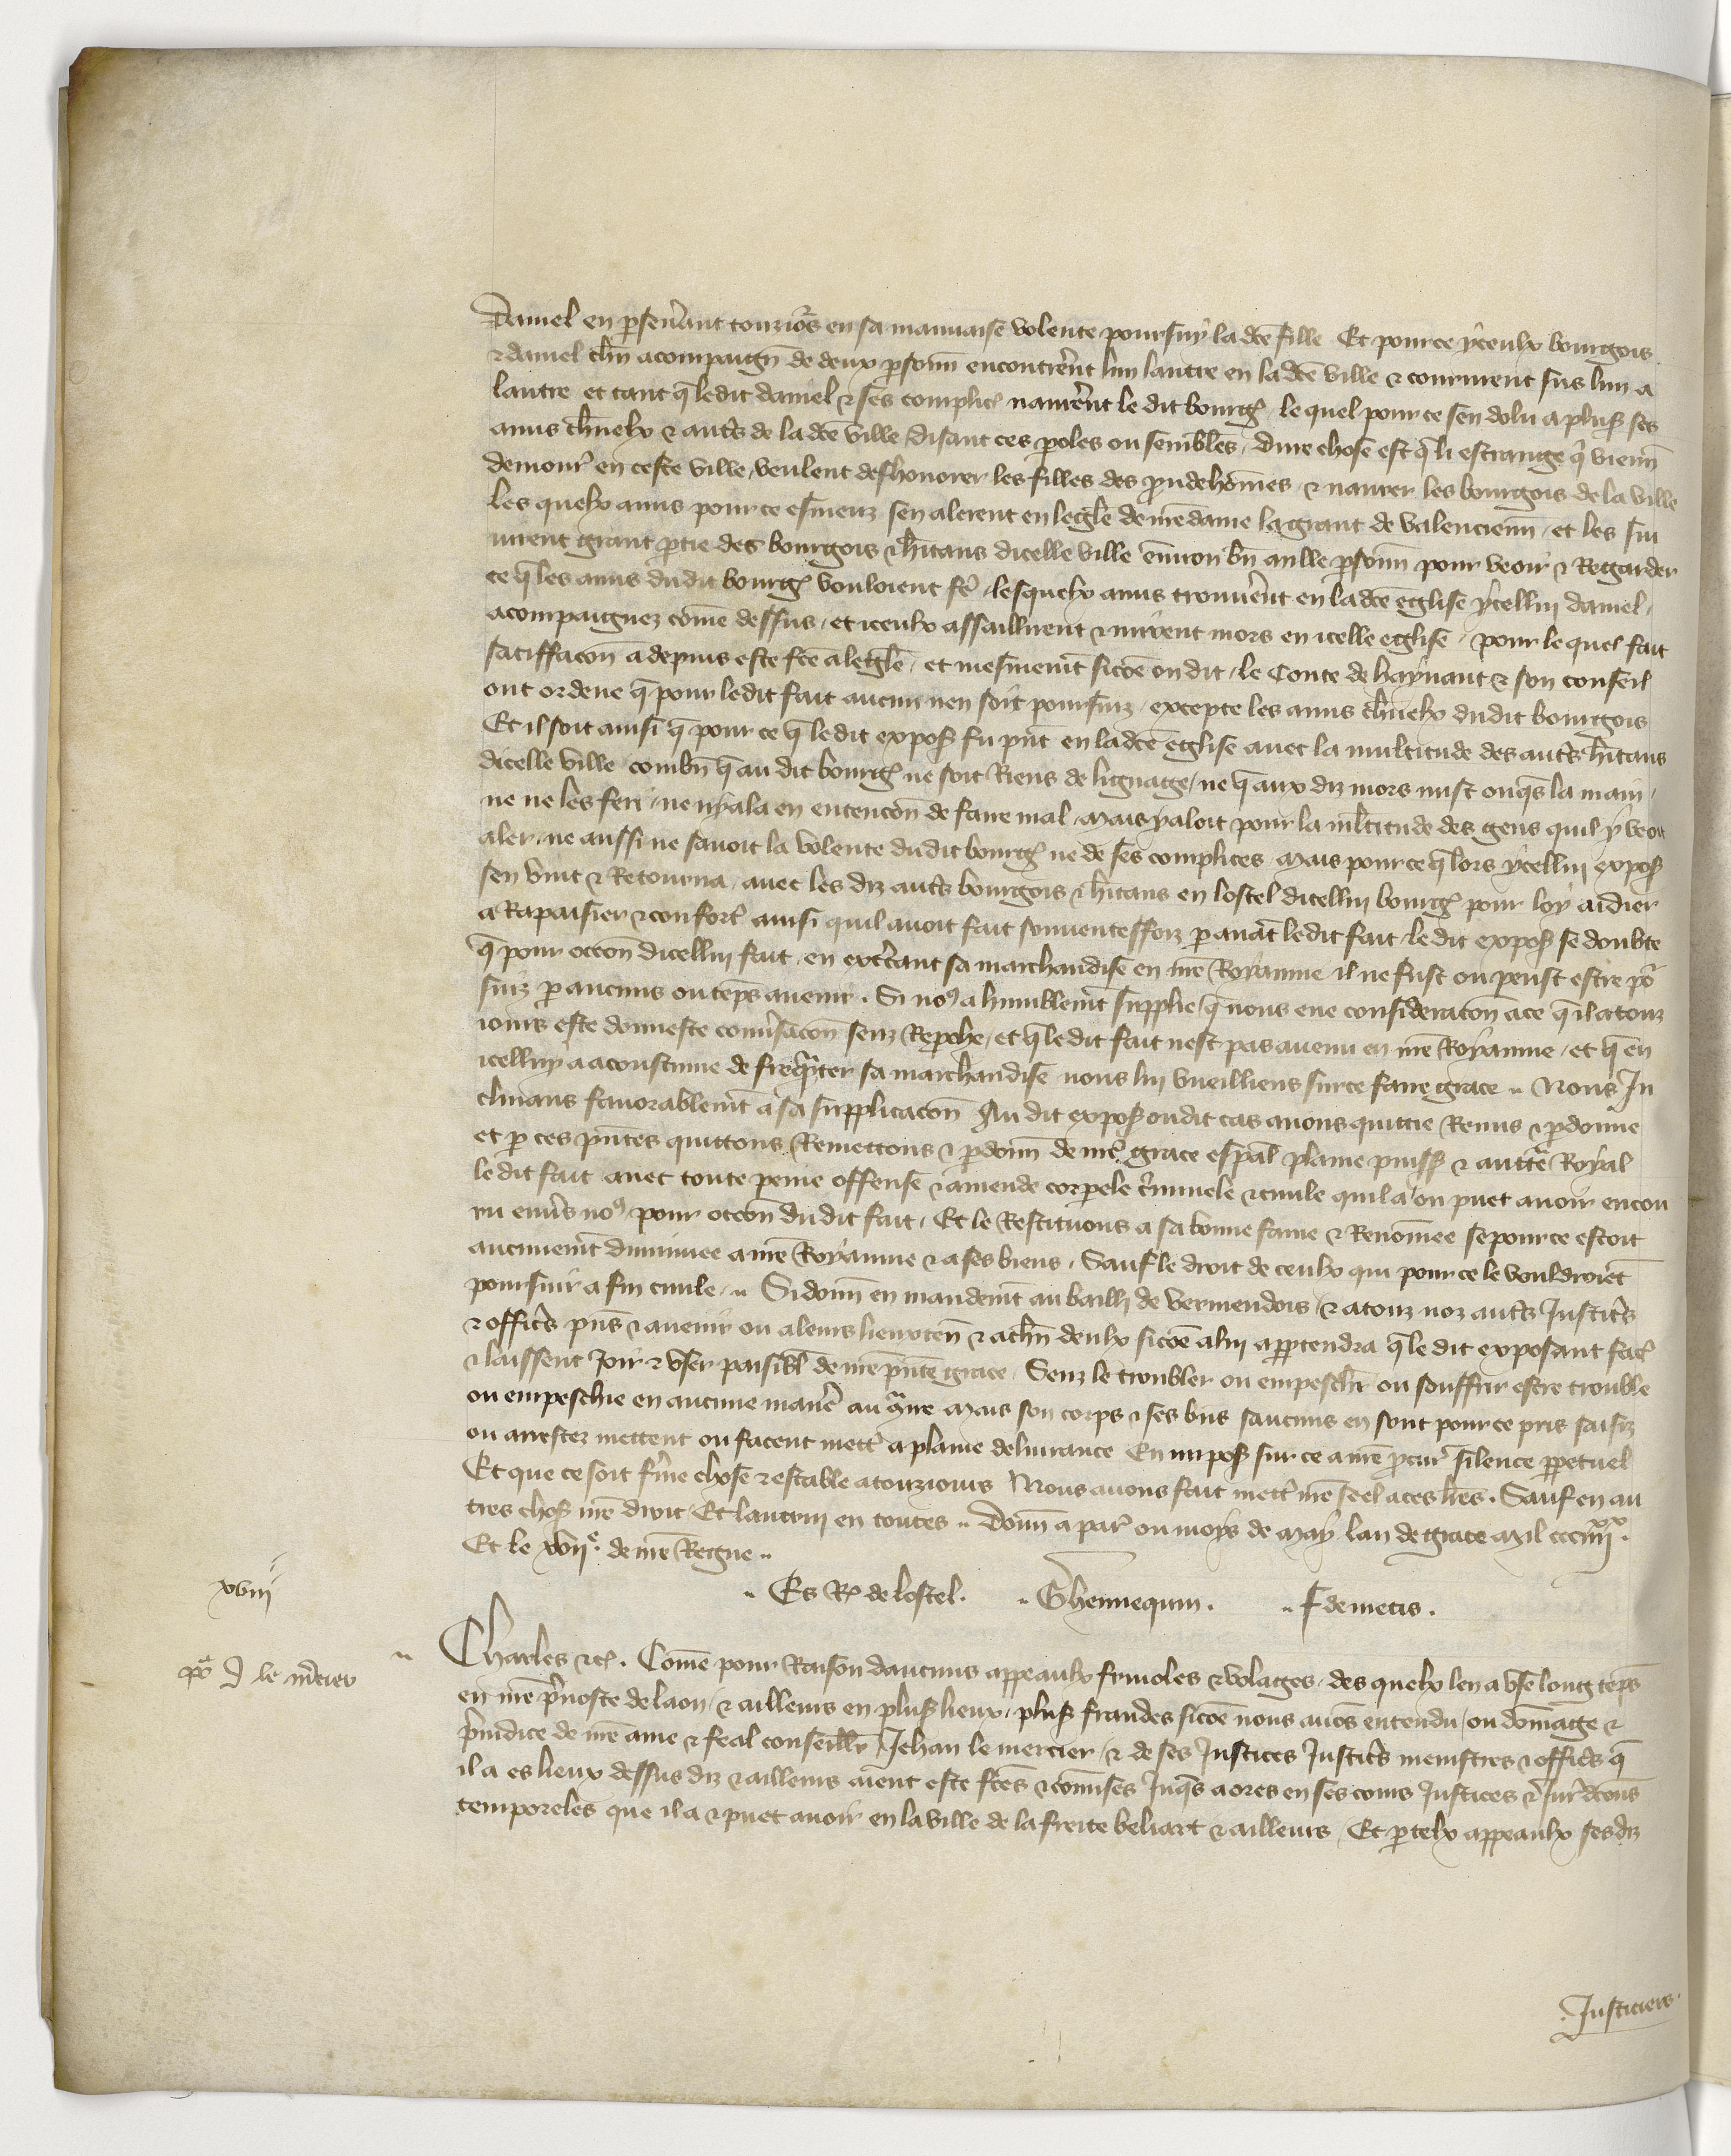 Daniel en ꝑseuerant touziors en sa mauuaise volente poursuy ladce fille Et pource yceulx bourgois
& daniel chun acompaign de deux ꝑsonn encontrerent lun lautre en ladce ville & coururent sus lun a
lautre et tant q ledit daniel & ses complic naurerent le dit bourg le quel pour ce sen dolu a plus ses
amis charnelx & autrs de ladce ville disant ces ꝑoles ou sembles. Dure chose est q li estrange q vienn
demourer en ceste ville veulent deshonorer les filles des prudehomes & naurer les bourgois de la ville
Les quelx amis pour ce esmeuz sen alerent en legle de nre dame la grant de valencienn. et les sui
uirent grant ꝑtie des bourgois & hitans dicelle ville enuiron bn mille ꝑsonn pour veoir & Regarder
ce q les amis dudit bourg vouloient fe, lesquelx amis trouuerent en ladce eglise ycellui daniel
acompaignez come dessus, et iceulx assaillirent & mirent mors en icelle eglise. pour le quel fait
satiffacon a depuis este fce a legle. et mesmemt sicoe on dit le Conte de haynaut & son conseil
ont ordene q pour ledit fait aucun nen soit poursuiz excepte les amis charnelx dudit bourgois
Et il soit ainsi q pour ce q ledit expos fu pnt en ladce eglise auec la multitude des autrs hitans
dicelle ville combn q au dit bourg ne soit Riens de lignage, ne q aux diz mors mist onqs la main
ne ne les feri, ne ny ala en entencon de faire mal. Mais y aloit pour la multitude des gens quil y veoit
aler, ne aussi ne sauoit la volente dudit bourg ne de ses complices. Mais pource q lors ycellui expos
sen vint & Retourna, auec les diz autrs bourgois & hitans en lostel dicellui bourg pour loy aidier
a Rapaisier & conforter ainsi quil auoit fait souuenteffoiz ꝑ auant ledit fait le dit expos se doubte
q pour occon dicellui fait, en excercant sa marchandise en nre Royaume il ne fust ou peust estre por
suiz ꝑ aucuns ou temps auenir. Si nos a humblemt supplie q nous eue consideracon a ce q il a touz
iours este donneste conuersacon senz Reproche, et q ledit fait nest pas auenu en nre Royaume, et q en
icelluy a acoustume de frequenter sa marchandise nous lui vueilliens sur ce faire grace. Nous In
clinans fauorablemt a sa supplicacon Au dit expos oudit cas auons quittie Remis & ꝑdonne
et ꝑ ces pntes quittons Remettons & ꝑdonn de nre grace espal plaine puiss & auttre Royal
ledit fait auec toute peine offense & amende corporele criminele & ciuile quil a ou puet auoir encou
ru enuers nos pour occon dudit fait. Et le Restituons a sa bonne fame & Renomee se pour ce estoit
aucunemt diminuee a nre Royaume & a ses biens. Sauf le droit de ceulx qui pour ce le vouldroiet
poursuir a fin ciuile. Si donn en mandemt au bailli de vermendois, & a touz noz autrs Justicrs
& officrs pns & auenir ou a leurs lieuxten & a chn deulx sicoe a lui appertendra q le dit exposant facet
& laissent Joir & vser paisibl de nre pnte grace. Senz le troubler ou empescher ou souffrir estre trouble
ou empeschie en aucune maniere au contraire Mais son corps & ses bns saucuns en sont pour ce pris saisiz
ou arrestez mettent ou facent mettr a plaine deliurance En impos sur ce a nre procur silence ꝑpetuel
Et que ce soit ferme chose & estable a touziours Nous auons fait mettr nre seel a ces lres. Sauf en au
tres chos nre droit Et lautrui en toutes. Donn a par ou moys de May lan de grace Mil cccIIIIxx
Et le xviie de nre Regne
Es Rq de lostel. Ghennequin. F de metis.
xviii
Charles &c. Come pour Raison daucuns appeaulx friuoles & volages, des quelx len a vse long teps
po J le mercier
en nre preuoste de laon, & ailleurs en plus lieux, plus fraudes sicoe nous auos entendu, ou domage &
preiudice de nre ame & feal conseillr Jehan le mercier, & de ses Justices Justicrs menistres & officrs q
il a es lieux dessus diz & ailleurs aient este fces & commises Jusqs a ores en ses cours Justices & Jurisdcons
temporeles que il a & puet auoir en la ville de la freite beliart & ailleurs. Et ꝑ telx appeaulx ses diz
Justiciers